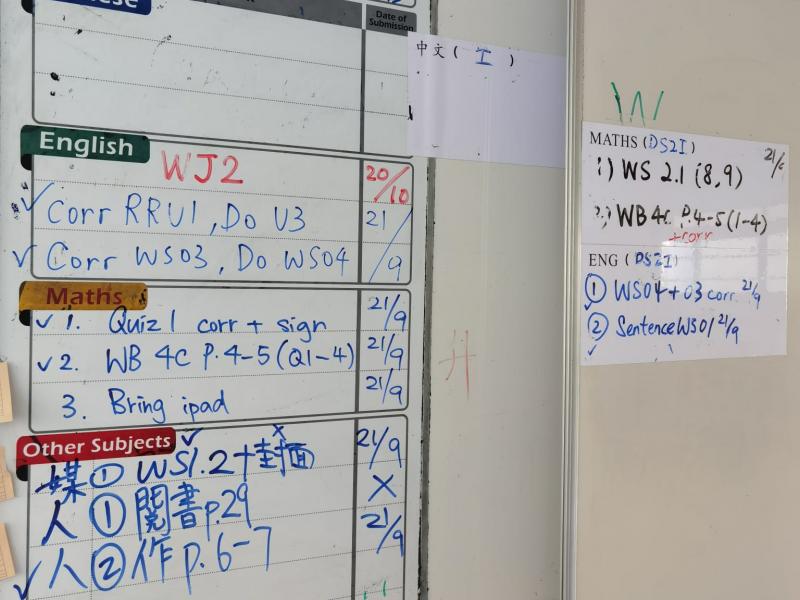 Date of Submission
English
WJ2 20/10
✓ Corr RRU1, Do U3 21/9
✓ Corr WS03, Do WS04
Maths
✓ 1. Quiz 1 corr + sign 21/9
✓ 2. WB 4C P.4-5 (Q1-4) 21/9
3. Bring ipad 21/9
Other Subjects
媒 ① WS1.2+封面 21/9
人 ① 閱書p.29 X
✓ 人 ② 作p.6-7 21/9
中文 ( 工 )
升
W
MATHS (DS2I) 21/9
1) WS 2.1 (8,9)
2) WB 4C P.4-5 (1-4)
+corr
ENG (DS2I)
① WS04+03 corr. 21/9
② Sentence WS01 21/9